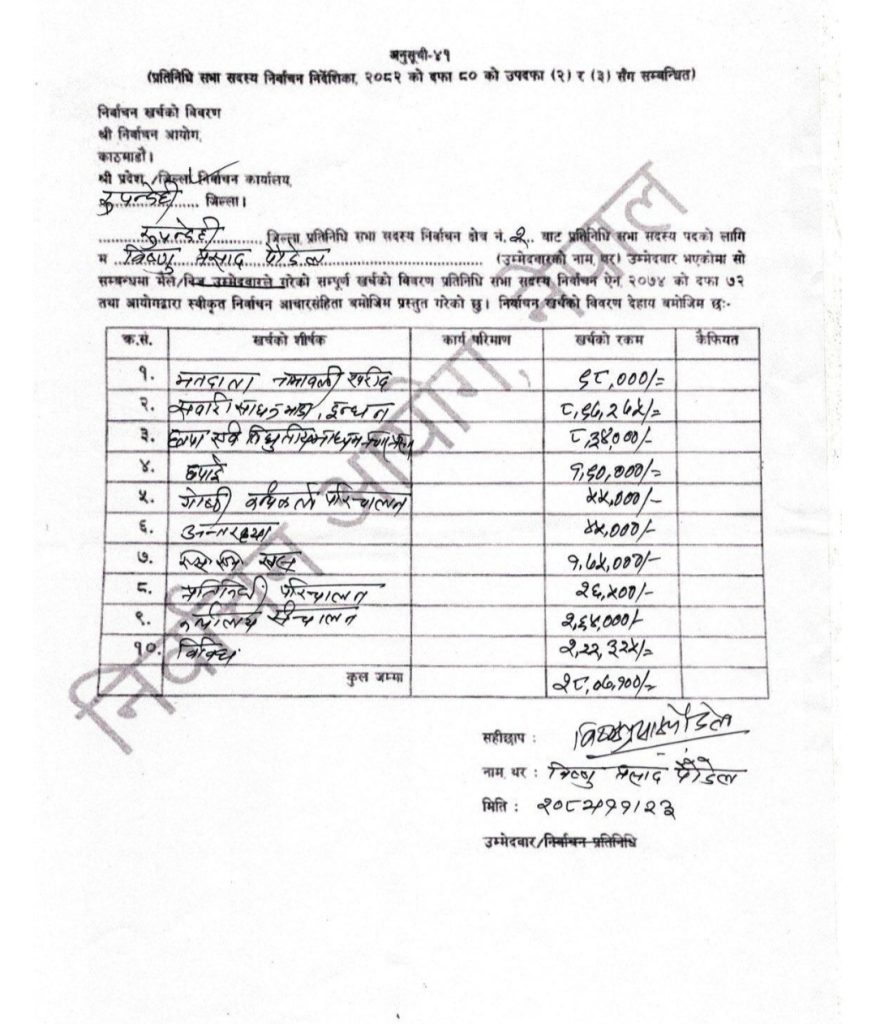 अनुसूची-४१
(प्रतिनिधि सभा सदस्य निर्वाचन निर्देशिका, २०८२ को दफा ८० को उपदफा (२) र (३) सँग सम्बन्धित)
निर्वाचन खर्चको विवरण
श्री निर्वाचन आयोग,
काठमाडौं।
श्री प्रदेश/जिल्ला निर्वाचन कार्यालय,
रुपन्देही जिल्ला।
रुपन्देही जिल्ला प्रतिनिधि सभा सदस्य निर्वाचन क्षेत्र नं. २ बाट प्रतिनिधि सभा सदस्य पदको लागि
म विष्णु प्रसाद पौडेल (उम्मेदवारको नाम, थर) उम्मेदवार भएकोमा सो
सम्बन्धमा मैले/निज उम्मेदवारले गरेको सम्पूर्ण खर्चको विवरण प्रतिनिधि सभा सदस्य निर्वाचन ऐन, २०७४ को दफा ७२
तथा आयोगद्वारा स्वीकृत निर्वाचन आचारसंहिता बमोजिम प्रस्तुत गरेको छु। निर्वाचन खर्चको विवरण देहाय बमोजिम छः-
क.सं. खर्चको शीर्षक कार्य परिमाण खर्चको रकम कैफियत
१. मतदाता नामावली खरीद ६८,०००/=
२. सवारी साधन भाडा, इन्धन
३. ८,३४,०००/-
४. छपाई १,६०,०००/=
५. गोष्ठी परिचालन ५५,०००/-
६. अन्तरक्रिया
७. १,७५,०००/-
८. प्रतिनिधी परिचालन २६,५००/-
९. कार्यालय संचालन २,६५,०००/-
१०. विविध २,२२,३२५/=
कुल जम्मा २८,०७,१००/=
सहीछाप :
नाम, थर : विष्णु प्रसाद पौडेल
मिति : २०८२।११।२३
उम्मेदवार/निर्वाचन प्रतिनिधि
निर्वाचन आयोग, नेपाल